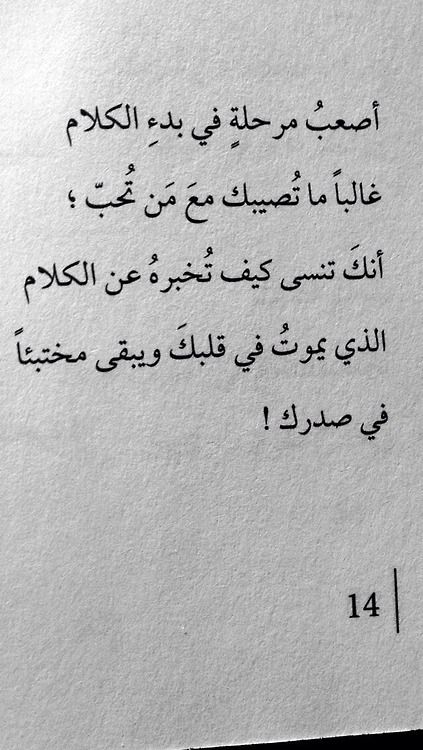 أصعبُ مرحلةٍ في بدءِ الكلام
غالباً ما تُصيبك معَ مَن تُحبّ ؛
أنكَ تنسى كيف تُخبرهُ عن الكلام
الذي يموتُ في قلبكَ ويبقى مختبئاً
في صدرك !
14